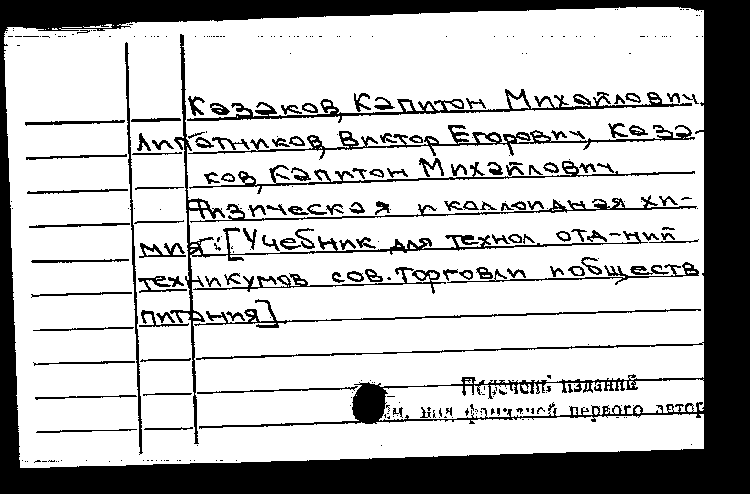 Казаков, Капитон Михайлович.
Липатников, Виктор Егорович, Каза-
ков, Капитон Михайлович.
Физическая и коллоидная хи-
мия: [Учебник для технол. отд-ний
техникумов сов. торговли и обществ.
питания]
Перечень изданий
см. под фамилией первого автор